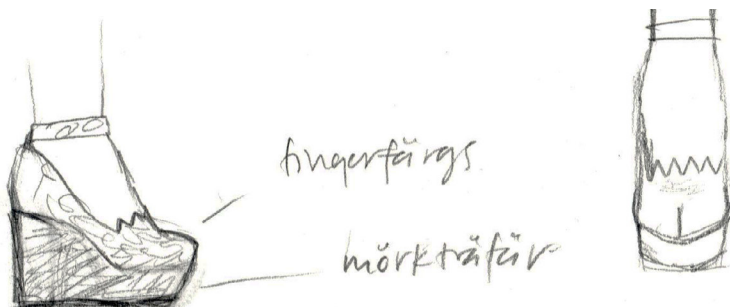 fingerfärgs
mörkträfär